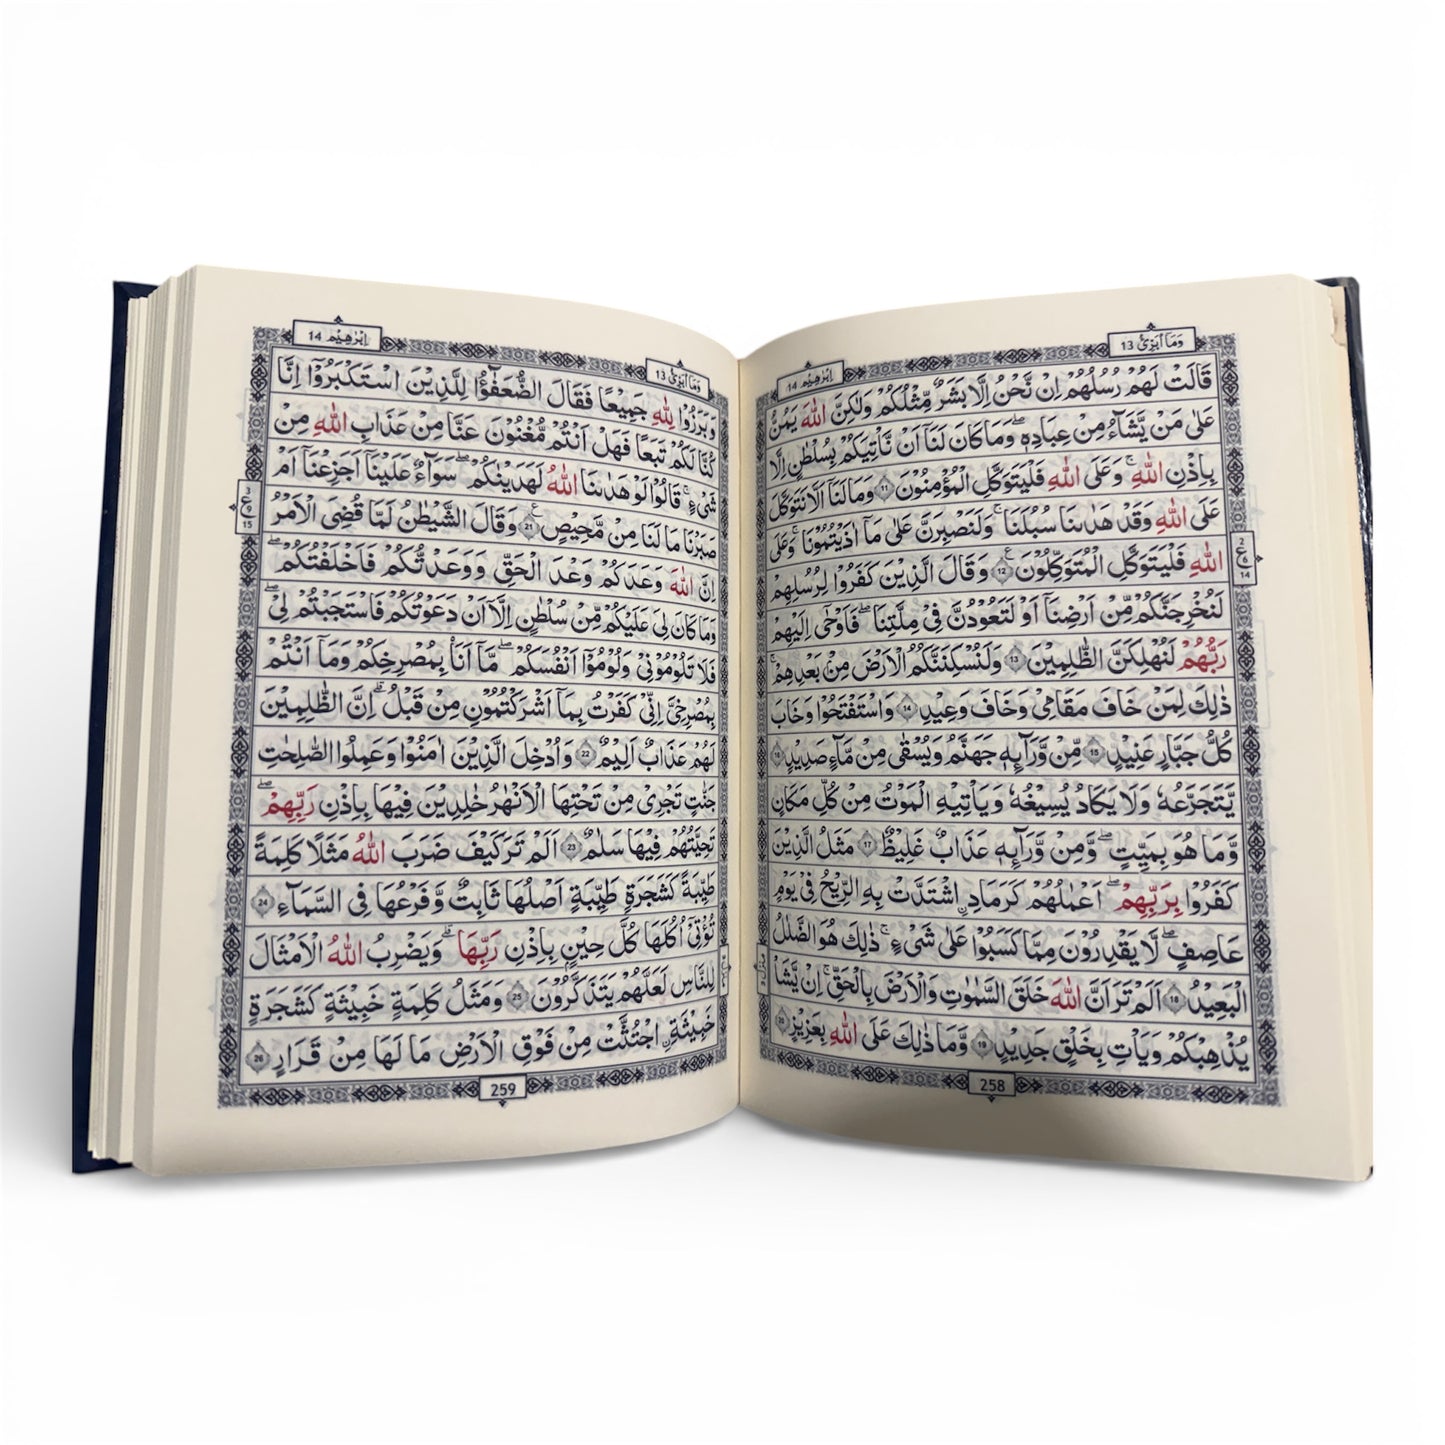 وَمَاۤ اُبَرِّئُ 13
اِبْرٰهِيْم 14
قَالَتْ لَهُمْ رُسُلُهُمْ اِنْ نَّحْنُ اِلَّا بَشَرٌ مِّثْلُكُمْ وَلٰكِنَّ اللّٰهَ يَمُنُّ
عَلٰى مَنْ يَّشَآءُ مِنْ عِبَادِهٖ ؕ وَمَا كَانَ لَنَاۤ اَنْ نَّاْتِيَكُمْ بِسُلْطٰنٍ اِلَّا
بِاِذْنِ اللّٰهِ ؕ وَعَلَى اللّٰهِ فَلْيَتَوَكَّلِ الْمُؤْمِنُوْنَ 11 وَمَا لَنَاۤ اَلَّا نَتَوَكَّلَ
عَلَى اللّٰهِ وَقَدْ هَدٰىنَا سُبُلَنَا ؕ وَلَنَصْبِرَنَّ عَلٰى مَاۤ اٰذَيْتُمُوْنَا ؕ وَعَلَى
اللّٰهِ فَلْيَتَوَكَّلِ الْمُتَوَكِّلُوْنَ 12 وَقَالَ الَّذِيْنَ كَفَرُوْا لِرُسُلِهِمْ
لَنُخْرِجَنَّكُمْ مِّنْ اَرْضِنَاۤ اَوْ لَتَعُوْدُنَّ فِيْ مِلَّتِنَا ؕ فَاَوْحٰۤى اِلَيْهِمْ
رَبُّهُمْ لَنُهْلِكَنَّ الظّٰلِمِيْنَ 13 وَلَنُسْكِنَنَّكُمُ الْاَرْضَ مِنْۢ بَعْدِهِمْ ؕ
ذٰلِكَ لِمَنْ خَافَ مَقَامِيْ وَخَافَ وَعِيْدِ 14 وَاسْتَفْتَحُوْا وَخَابَ
كُلُّ جَبَّارٍ عَنِيْدٍ 15 مِّنْ وَّرَآئِهٖ جَهَنَّمُ وَيُسْقٰى مِنْ مَّآءٍ صَدِيْدٍ 16
يَّتَجَرَّعُهٗ وَلَا يَكَادُ يُسِيْغُهٗ وَيَاْتِيْهِ الْمَوْتُ مِنْ كُلِّ مَكَانٍ
وَّمَا هُوَ بِمَيِّتٍ ؕ وَمِنْ وَّرَآئِهٖ عَذَابٌ غَلِيْظٌ 17 مَثَلُ الَّذِيْنَ
كَفَرُوْا بِرَبِّهِمْ اَعْمَالُهُمْ كَرَمَادِ ِۨاشْتَدَّتْ بِهِ الرِّيْحُ فِيْ يَوْمٍ
عَاصِفٍ ؕ لَّا يَقْدِرُوْنَ مِمَّا كَسَبُوْا عَلٰى شَيْءٍ ؕ ذٰلِكَ هُوَ الضَّلٰلُ
الْبَعِيْدُ 18 اَلَمْ تَرَ اَنَّ اللّٰهَ خَلَقَ السَّمٰوٰتِ وَالْاَرْضَ بِالْحَقِّ ؕ اِنْ يَّشَاْ
يُذْهِبْكُمْ وَيَاْتِ بِخَلْقٍ جَدِيْدٍ 19 وَّمَا ذٰلِكَ عَلَى اللّٰهِ بِعَزِيْزٍ 20
2
ع
14
258
وَمَاۤ اُبَرِّئُ 13
اِبْرٰهِيْم 14
وَبَرَزُوْا لِلّٰهِ جَمِيْعًا فَقَالَ الضُّعَفٰٓؤُا لِلَّذِيْنَ اسْتَكْبَرُوْۤا اِنَّا
كُنَّا لَكُمْ تَبَعًا فَهَلْ اَنْتُمْ مُّغْنُوْنَ عَنَّا مِنْ عَذَابِ اللّٰهِ مِنْ
شَيْءٍ ؕ قَالُوْا لَوْ هَدٰىنَا اللّٰهُ لَهَدَيْنٰكُمْ ؕ سَوَآءٌ عَلَيْنَاۤ اَجَزِعْنَاۤ اَمْ
صَبَرْنَا مَا لَنَا مِنْ مَّحِيْصٍ 21 وَقَالَ الشَّيْطٰنُ لَمَّا قُضِيَ الْاَمْرُ
اِنَّ اللّٰهَ وَعَدَكُمْ وَعْدَ الْحَقِّ وَوَعَدْتُّكُمْ فَاَخْلَفْتُكُمْ ؕ
وَمَا كَانَ لِيَ عَلَيْكُمْ مِّنْ سُلْطٰنٍ اِلَّاۤ اَنْ دَعَوْتُكُمْ فَاسْتَجَبْتُمْ لِيْ ۚ
فَلَا تَلُوْمُوْنِيْ وَلُوْمُوْۤا اَنْفُسَكُمْ ؕ مَاۤ اَنَا بِمُصْرِخِكُمْ وَمَاۤ اَنْتُمْ
بِمُصْرِخِيَّ ؕ اِنِّيْ كَفَرْتُ بِمَاۤ اَشْرَكْتُمُوْنِ مِنْ قَبْلُ ؕ اِنَّ الظّٰلِمِيْنَ
لَهُمْ عَذَابٌ اَلِيْمٌ 22 وَاُدْخِلَ الَّذِيْنَ اٰمَنُوْا وَعَمِلُوا الصّٰلِحٰتِ
جَنّٰتٍ تَجْرِيْ مِنْ تَحْتِهَا الْاَنْهٰرُ خٰلِدِيْنَ فِيْهَا بِاِذْنِ رَبِّهِمْ ؕ
تَحِيَّتُهُمْ فِيْهَا سَلٰمٌ 23 اَلَمْ تَرَ كَيْفَ ضَرَبَ اللّٰهُ مَثَلًا كَلِمَةً
طَيِّبَةً كَشَجَرَةٍ طَيِّبَةٍ اَصْلُهَا ثَابِتٌ وَّفَرْعُهَا فِي السَّمَآءِ 24
تُؤْتِيْۤ اُكُلَهَا كُلَّ حِيْنٍۭ بِاِذْنِ رَبِّهَا ؕ وَيَضْرِبُ اللّٰهُ الْاَمْثَالَ
لِلنَّاسِ لَعَلَّهُمْ يَتَذَكَّرُوْنَ 25 وَمَثَلُ كَلِمَةٍ خَبِيْثَةٍ كَشَجَرَةٍ
خَبِيْثَةِ ِۨاجْتُثَّتْ مِنْ فَوْقِ الْاَرْضِ مَا لَهَا مِنْ قَرَارٍ 26
3
ع
15
259